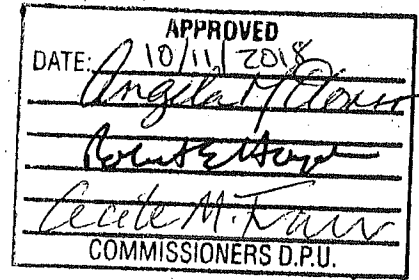 APPROVED
DATE: 10/11/2018
Angela M
Robert E Hayden
Cecile M.
COMMISSIONERS D.P.U.